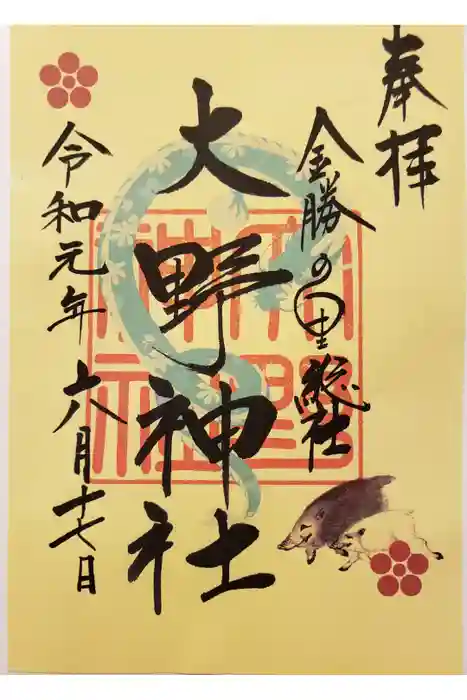 奉拝
金勝の里総社
大野神社
令和元年六月十七日